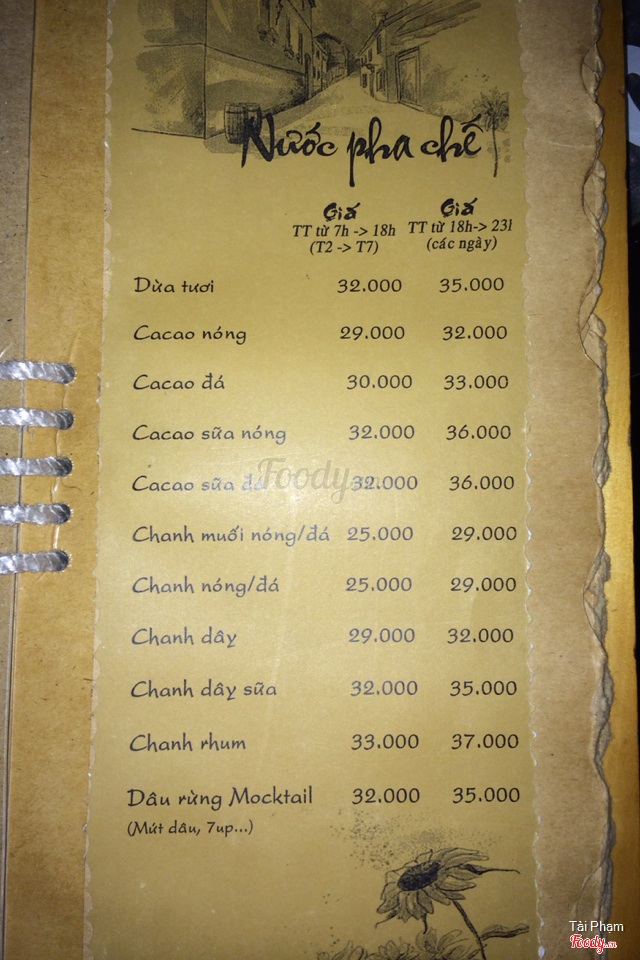 Nước pha chế
Giá Giá
TT từ 7h -> 18h TT từ 18h-> 23h
(T2 -> T7) (các ngày)
Dừa tươi 32.000 35.000
Cacao nóng 29.000 32.000
Cacao đá 30.000 33.000
Cacao sữa nóng 32.000 36.000
Cacao sữa đá 32.000 36.000
Foody
Chanh muối nóng/đá 25.000 29.000
Chanh nóng/đá 25.000 29.000
Chanh dây 29.000 32.000
Chanh dây sữa 32.000 35.000
Chanh rhum 33.000 37.000
Dâu rừng Mocktail 32.000 35.000
(Mứt dâu, 7up...)
Tài Phạm
Foody.vn